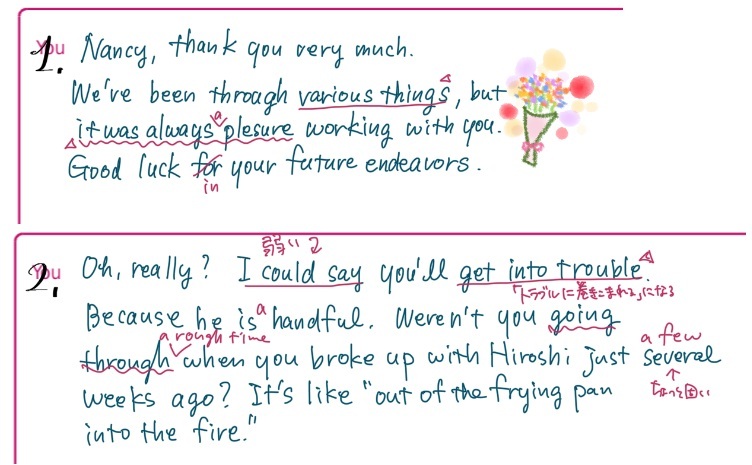 You 1. Nancy, thank you very much.
We've been through various things, but
a
it was always plesure working with you.
Good luck for your future endeavors.
in
弱い
You 2. Oh, really? I could say you'll get into trouble.
「トラブルに巻きこまれる」になる
Because he is a handful. Weren't you going
a rough time a few
through when you broke up with Hiroshi just several
weeks ago? It's like "out of the frying pan
ちょっと固い
into the fire."